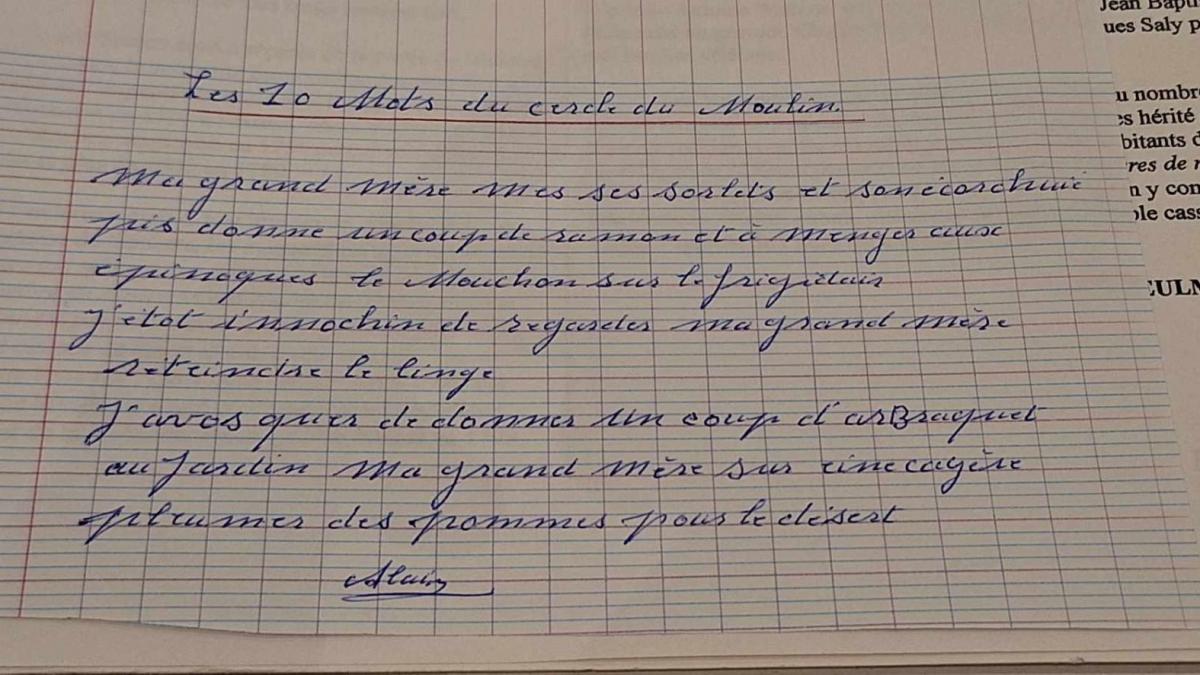 Les 10 Mots du cercle du Moulin
Ma grand mère mes ses sorlets et son écorchuie
pis donne un coup de ramon et à menger aux
épinoques le Mouchon sur le frigidair
J'étot innochin de regarder ma grand mère
réteindre le linge
J'avos quer de donner un coup d'arBraquet
au Jardin Ma grand mère sur eine cayère
pleumer des pommes pour le désert
Alain
Jean Bapti
ues Saly p
u nombre
es hérité
bitants d
res de r
n y con
ole cass
EULM